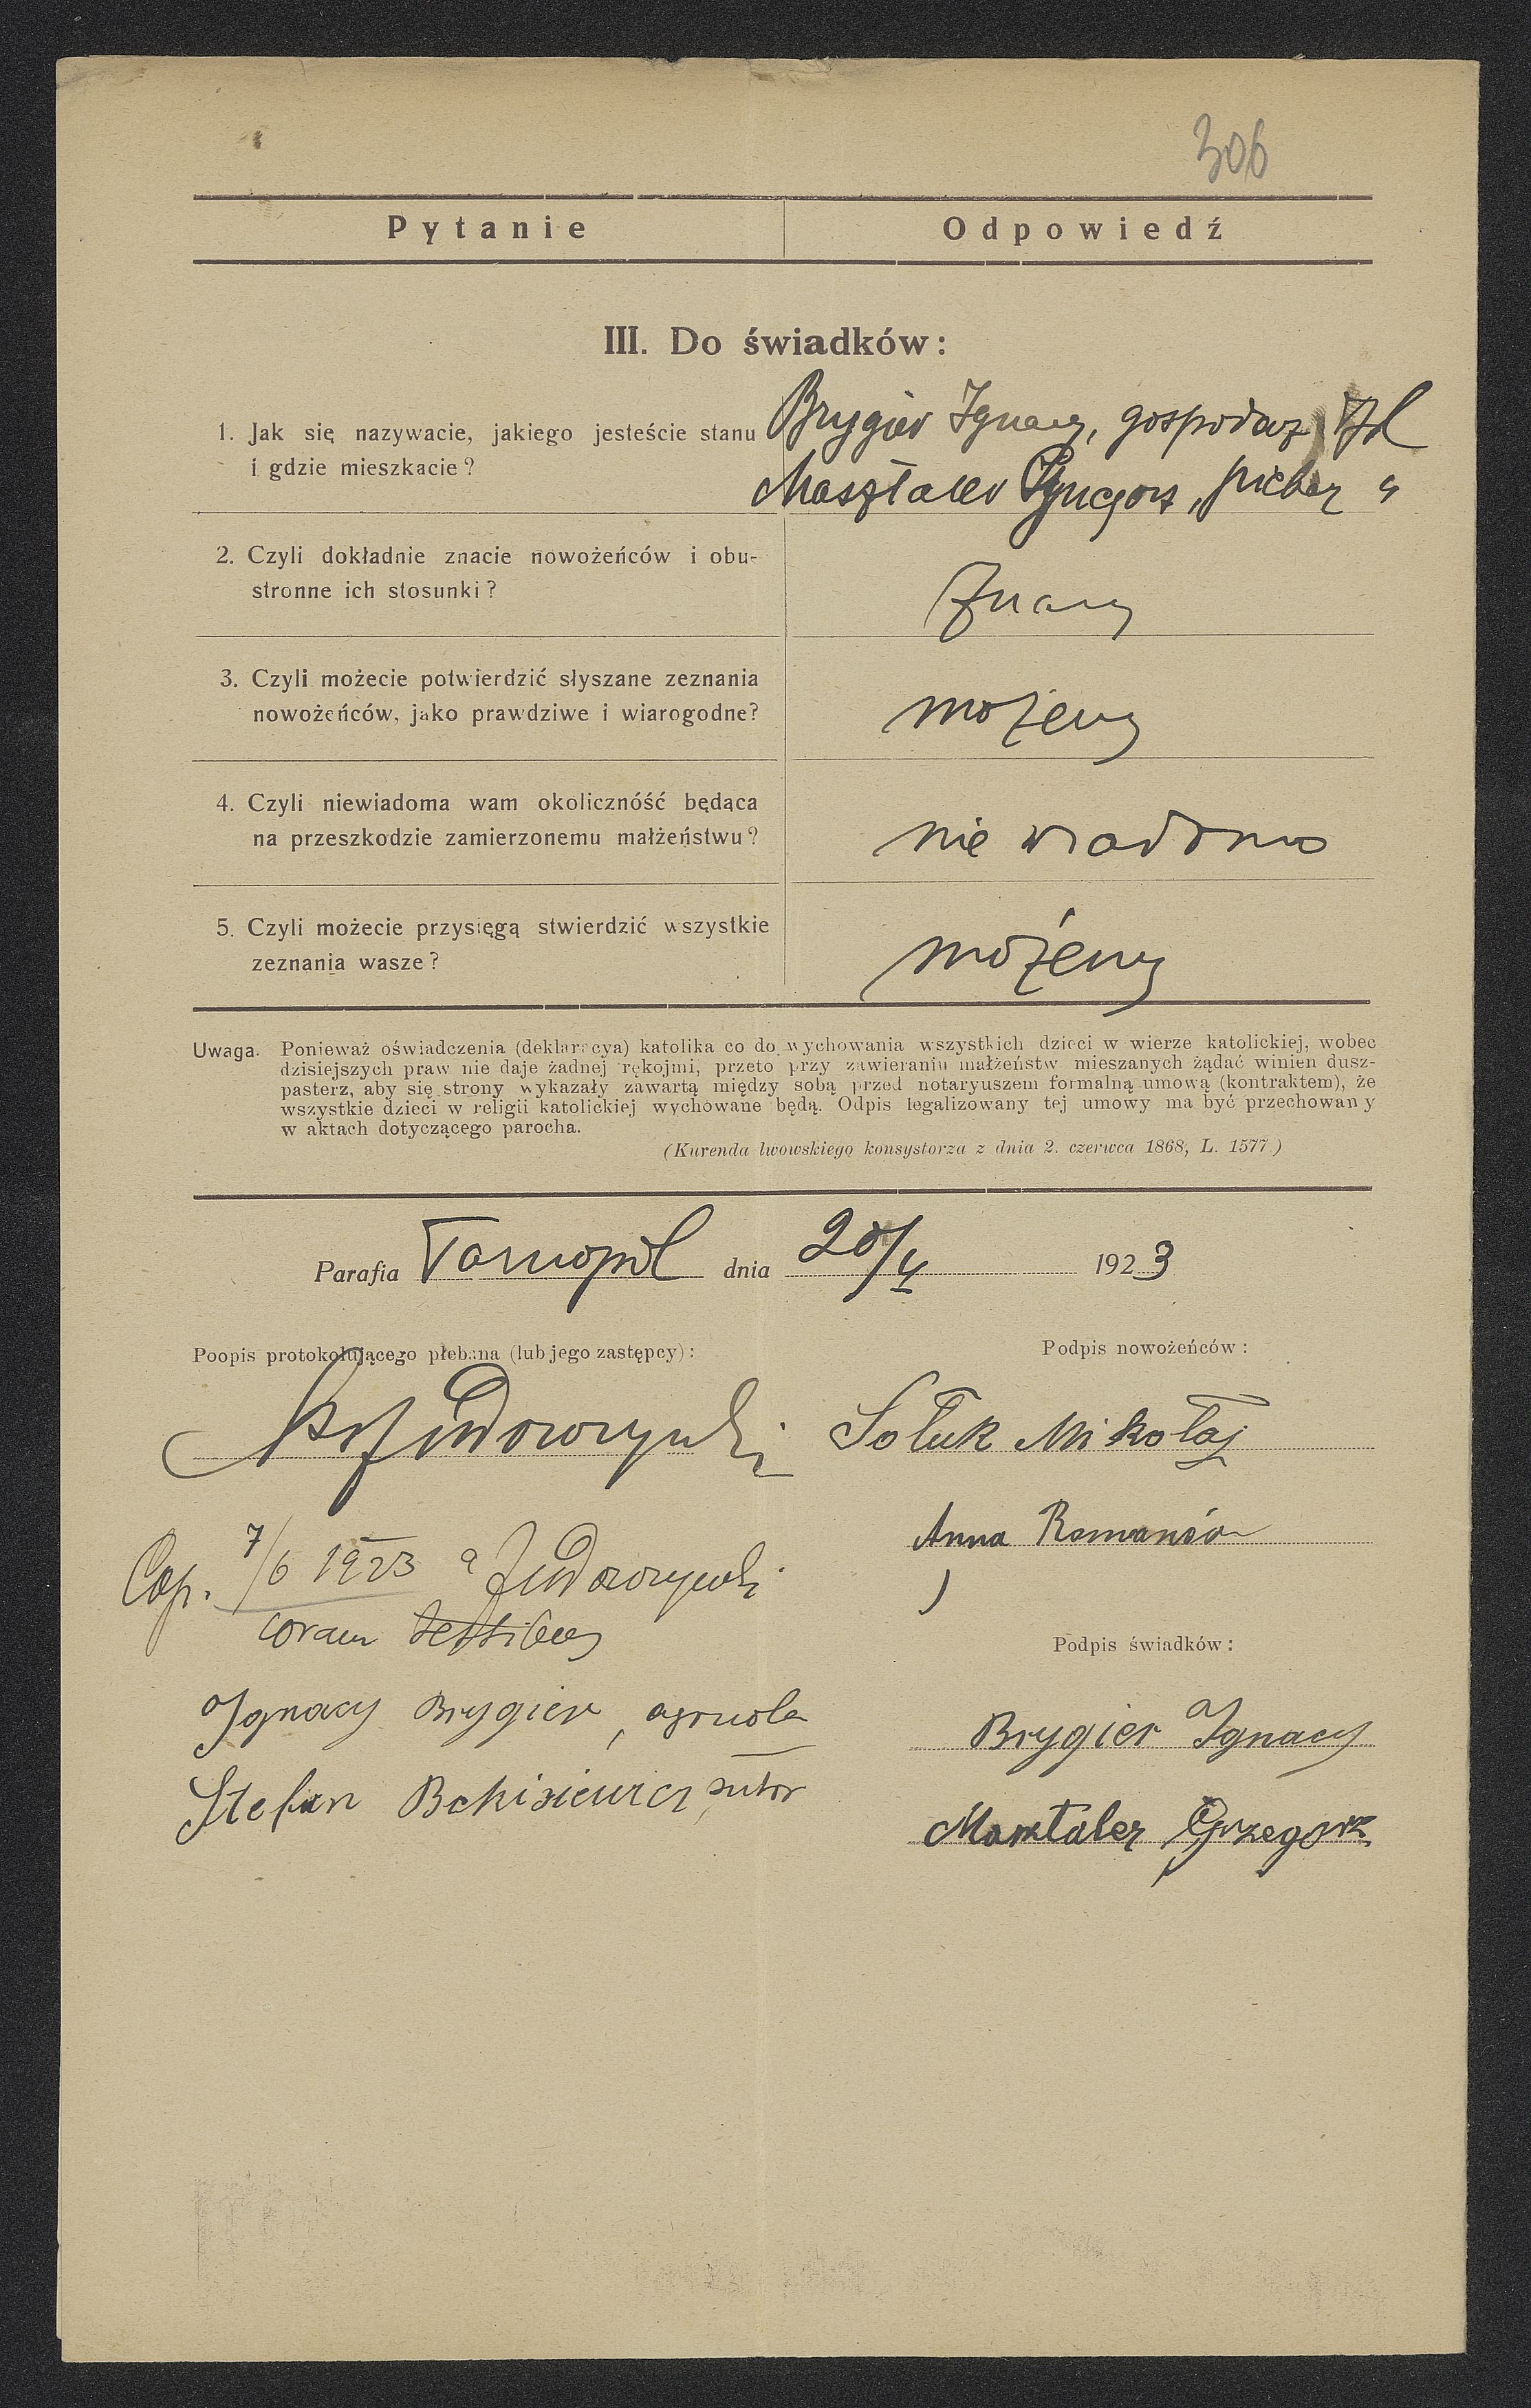 306
Pytanie
Odpowiedź
III. Do świadków:
1. Jak się nazywacie, jakiego jesteście stanu
i gdzie mieszkacie?
Brygier Ignacy, gospodarz
Masztaler Grzegorz, piekarz "
2. Czyli dokładnie znacie nowożeńców i obu-
stronne ich stosunki?
Znamy
3. Czyli możecie potwierdzić słyszane zeznania
nowożeńców, jako prawdziwe i wiarogodne?
możemy
4. Czyli niewiadoma wam okolicznóść będąca
na przeszkodzie zamierzonemu małżeństwu?
nie wiadoma
5. Czyli możecie przysięgą stwierdzić wszystkie
zeznania wasze?
możemy
Uwaga. Ponieważ oświadczenia (deklaracya) katolika co do wychowania wszystkich dzieci w wierze katolickiej, wobec
dzisiejszych praw nie daje żadnej rękojmi, przeto przy zawieraniu małżeństw mieszanych żądać winien dusz-
pasterz, aby się strony wykazały zawartą między sobą przed notaryuszem formalną umową (kontraktem), że
wszystkie dzieci w religii katolickiej wychowane będą. Odpis legalizowany tej umowy ma być przechowany
w aktach dotyczącego parocha.
(Kurenda lwowskiego konsystorza z dnia 2. czerwca 1868, L. 1577)
Parafia Tarnopol dnia 1923
Poopis protokołującego plebana (lub jego zastępcy):
Podpis nowożeńców:
Sołuk Mikołaj
Anna Romanów
Cop. 7/6 1923 a
coram testibus
Podpis świadków:
Ignacy Brygier, agricola
Brygier Ignacy
Stefan sutor
Masztaler Grzegorz